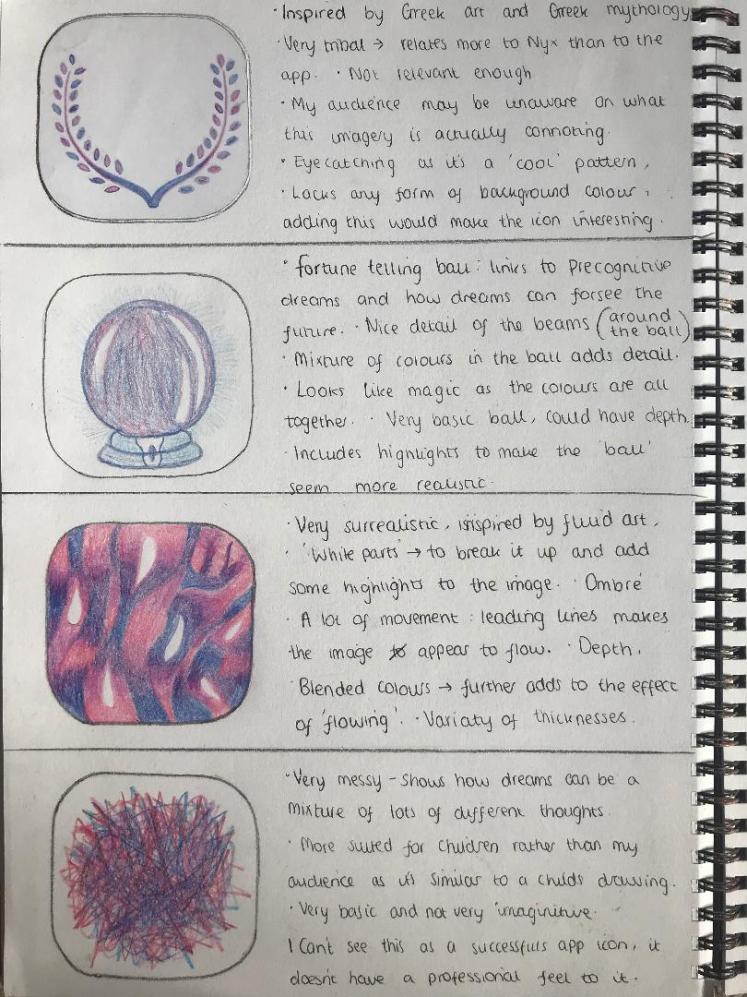 · Inspired by Greek art and Greek mythology
· Very tribal → relates more to Nyx than to the
app. · Not relevant enough
· My audience may be unaware on what
this imagery is actually connoting.
· Eyecatching as it's a 'cool' pattern,
· Lacks any form of background colour,
adding this would make the icon interesting.
· fortune telling ball: links to precognitive
dreams and how dreams can forsee the
future. · Nice detail of the beams (around the ball)
· Mixture of colours in the ball adds detail.
· Looks like magic as the colours are all
together. · Very basic ball, could have depth.
· Includes highlights to make the 'ball'
seem more realistic.
· Very surrealistic, inspired by fluid art,
· 'White parts' → to break it up and add
some highlights to the image. · Ombré
· A lot of movement: leading lines makes
the image to appear to flow. · Depth,
· Blended colours → further adds to the effect
of 'flowing'. · Variaty of thicknesses.
· Very messy - shows how dreams can be a
mixture of lots of different thoughts
· More suited for children rather than my
audience as it's similar to a childs drawing.
· Very basic and not very imaginitive.
I can't see this as a successfuls app icon, it
doesn't have a professional feel to it.